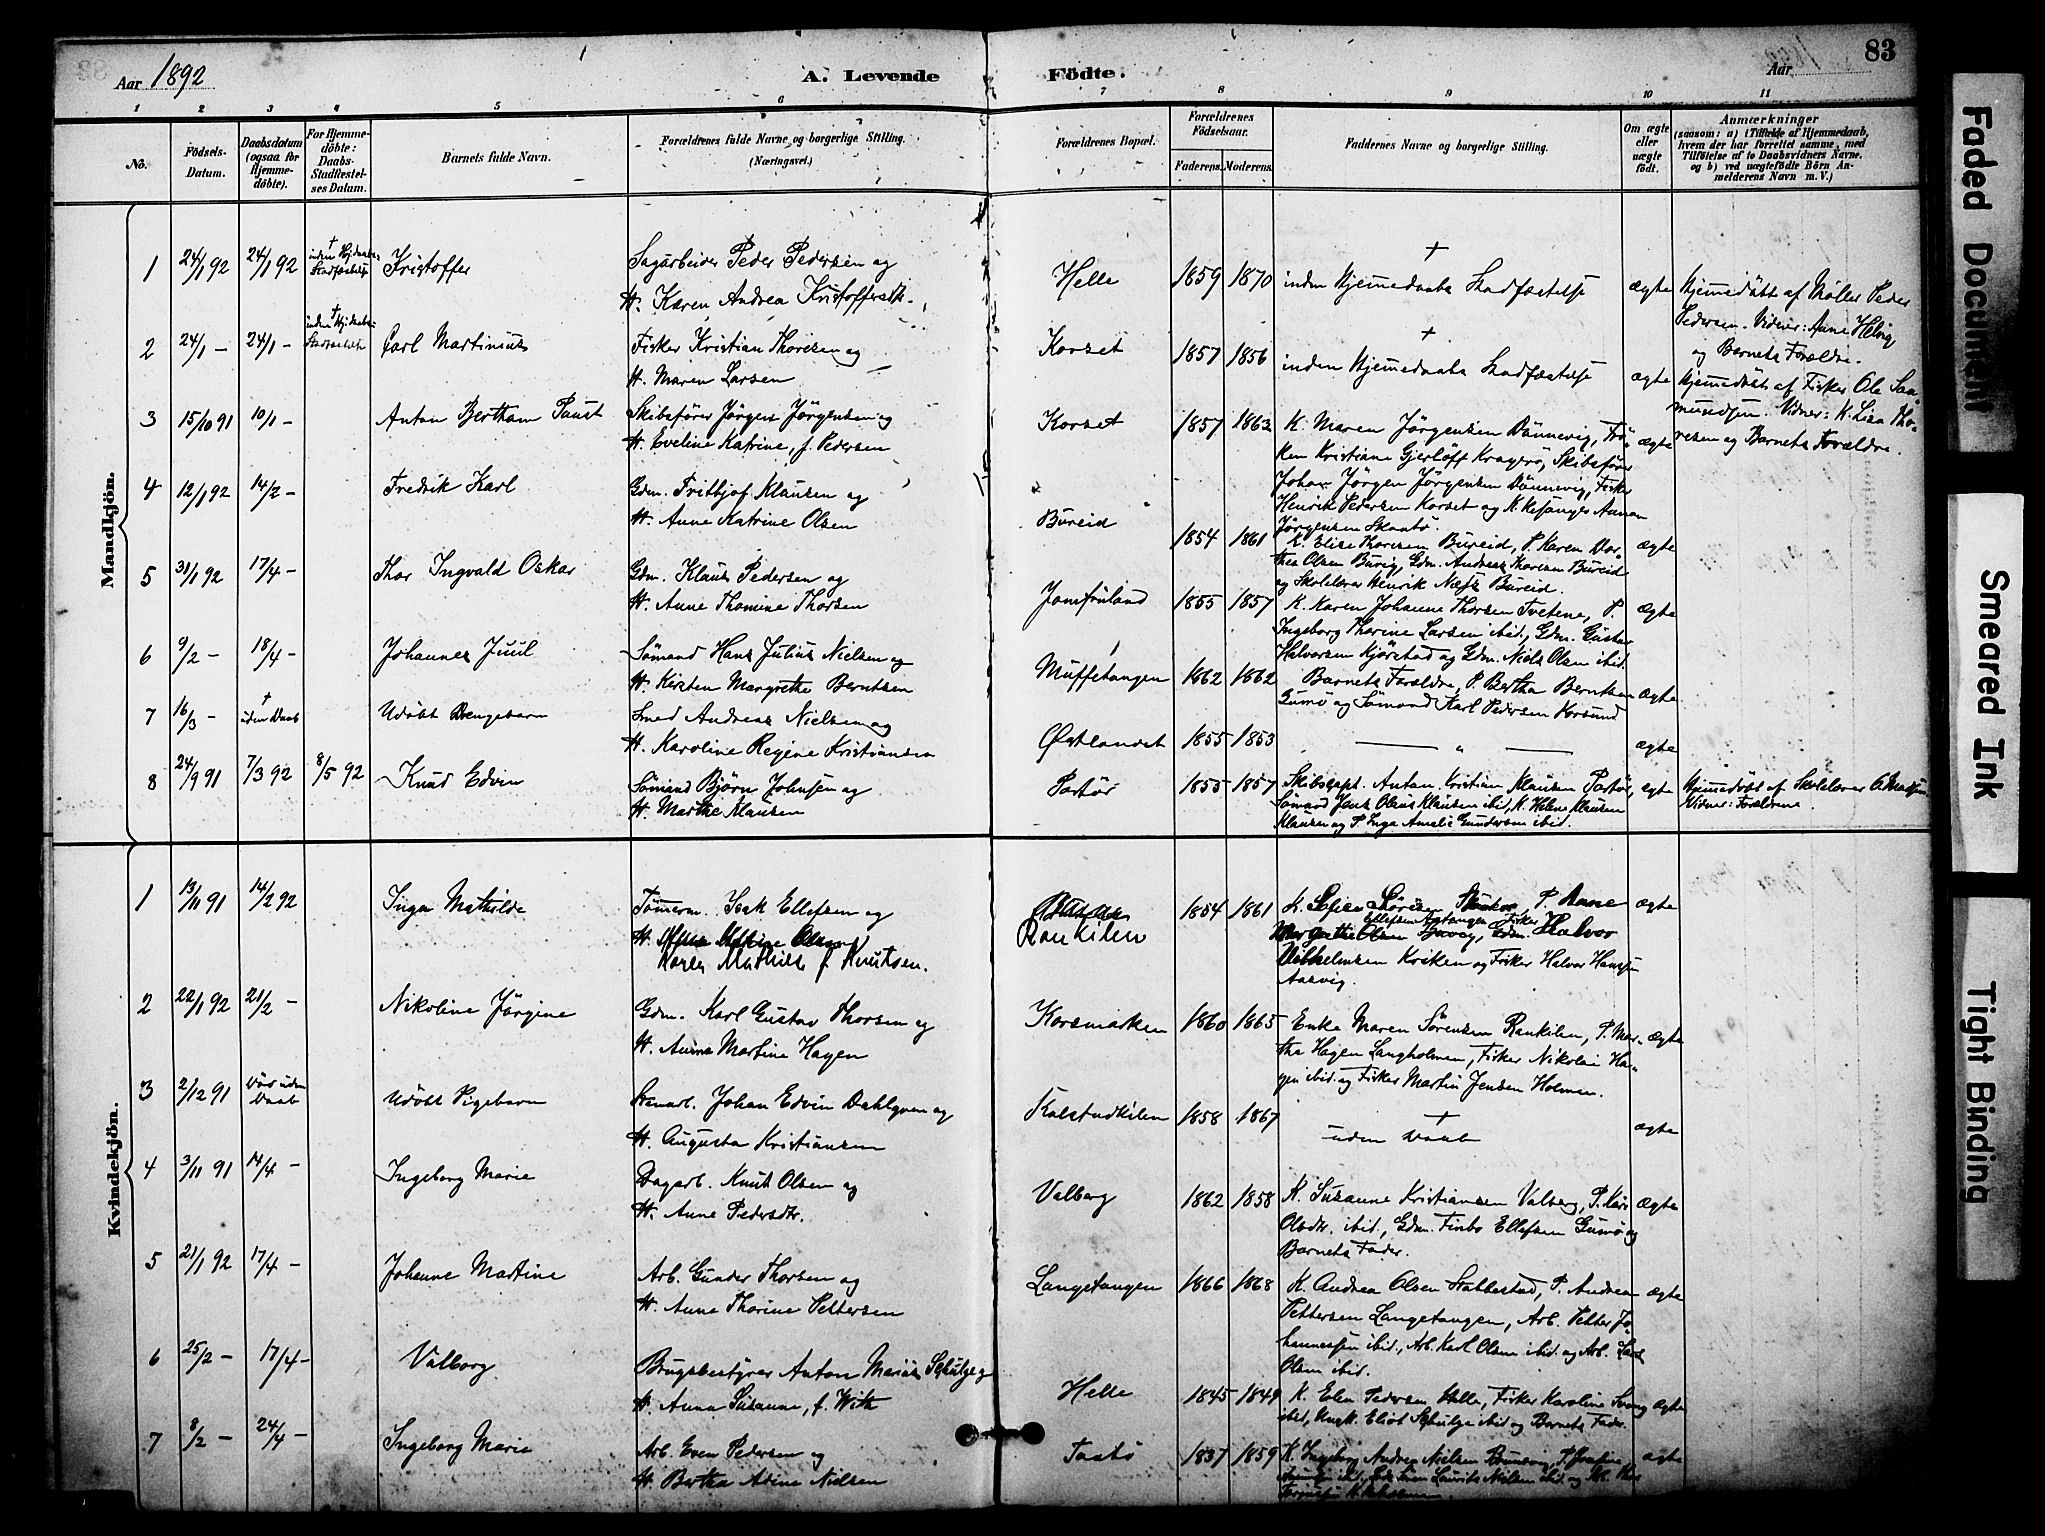 Aar 1892
A. Levende Födte.
Aar
83
1 2 3 4 5 6 7 8 9 10 11
No.
Födsels-Datum.
Daabsdatum (ogsaa for Hjemme-döbte).
For Hjemme-döbte: Daabs-Stadfæstel-ses Datum.
Barnets fulde Navn.
Forældrenes fulde Navne og borgerlige Stilling. (Næringsvei.)
Forældrenes Bopæl.
Forældrenes Födselsaar.
Faderens. Moderens.
Faddernes Navne og borgerlige Stilling.
Om ægte eller uægte födt.
Anmærkninger (saasom: a) i Tilfælde af Hjemmedaab, hvem der har forrettet samme, med Tilföielse af to Daabsvidners Navne, og b) ved uægtefödte Börn An-melderens Navn m. V.)
Mandkjön.
1 24/1 92 24/1 92 † inden Hj.daabs-Stadfæstelse Kristoffer
Sagarbeider Peder Pedersen og
H. Karen Andrea Kristoffersdtr.
Helle 1859 1870 † inden Hjemmedaabs Stadfæstelse ægte
Hjemmedöbt af Möller Peder
Pedersen. Vidner: Anne Helvig
og Barnets Forældre.
2 24/1 – 24/1 – † inden Hj.daabs-Stadfæstelse Carl Martinius
Fisker Kristian Thoresen og
H. Maren Larsen
Korset 1857 1856 † inden Hjemmedaabs Stadfæstelse ægte
Hjemmedöbt af Fisker Ole Saa-
mundsen. Vidner: K. Lisa Tho-
resen og Barnets Forældre.
3 15/10 91 10/1 – Anton Bertham Paust
Skibsförer Jörgen Jörgensen og
H. Eveline Katrine, f. Pedersen
Korset 1857 1862 ægte
K. Maren Jörgensen Dönnevig, Frö-
ken Kristiane Gjerlöff Kragerö, Skibsförer
Johan Jörgen Jörgensen Dönnevig, Fisker
Henrik Pedersen Korset og
Jörgensen Skaatö.
4 12/1 92 14/2 – Fredrik Karl
Gdm. Frithjof Klausen og
H. Anne Katrine Olsen
Bureid 1854 1861 ægte
K. Elise Thorsen Bureid, P. Karen Dor-
thea Olsen Burig, Gdm. Andreas Thorsen Bureid
og Skolelærer Henrik Næss Bureid.
5 31/1 92 17/4 – Thor Ingvald Oskar
Gdm. Klaus Pedersen og
H. Anne Thomine Thorsen
Jomfruland 1855 1857 ægte
K. Karen Johanne Thorsen Tvetene, P.
Ingeborg Thorine Larsen ibid., Gdm. Gustav
Halvorsen Kjörstad og Gdm. Niels Olsen ibid.
6 9/2 – 18/4 – Johannes Juul
Sömand Hans Julius Nielsen og
H. Kirsten Margrethe Berntsen
Muffetangen 1862 1862 ægte
Barnets Forældre, P. Bertha Berntsen
Gumö og Sömand Karl Pedersen Korsund
7 16/3 – † uden Daab Udöbt Drengebarn
Smed Andreas Nielsen og
H. Karoline Regine Kristiansen
Östlandet 1855 1853 — " — ægte
8 24/9 91 7/3 92 8/5 92 Knud Edvin
Sömand Björn Johnsen og
H. Marthe Klausen
Portör 1855 1857 ægte
Skibscapt. Anton Kristian Klausen Portör,
Sömand Jens Olaus Klausen ibid, K. Helene Klausen
Klausen og P. Inga Amalie Gundersen ibid.
Hjemmedöbt af Skolelærer
Vidner: Forældrene.
Kvindekjön.
1 13/11 91 14/2 92 Inga Mathilde
Tömerm. Isak Ellefsen og
H.
Karen Mathilde f. Knutsen.
Rönkilen 1854 1861 ægte
K. Sofie Sörensen P. Anne
Margrethe Ellefsen Fisker Halvor
Vilhelmsen Kriken og Fisker Halvor Hansen
Aasvig.
2 22/1 92 21/2 – Nikoline Jörgine
Gdm. Karl Gustav Thorsen og
H. Anne Martine Hagen
Korsmarken 1860 1865 ægte
Enke Maren Sörensen Rönkilen, P. Mar-
tha Hagen Langholmen, Fisker Nikolai Ha-
gen ibid. og Fisker Martin Jensen Holmen.
3 2/12 91 Död uden Daab Udöbt Pigebarn
Stenarb. Johan Edvin Dahlgren og
H. Augusta Kristiansen
Kalstadkilen 1858 1867 † uden Daab ægte
4 3/11 91 14/4 – Ingeborg Marie
Dagarb. Knut Olsen og
H. Anne Pedersdtr.
Valberg 1862 1858 ægte
K. Susanne Kristiansen Valberg, P. Kari
Olsdtr. ibid, Gdm. Finbo Ellefsen Gumö og
Barnets Fader.
5 21/1 92 17/4 – Johanne Martine
Arb. Gunder Thorsen og
H. Anne Thorine Pettersen
Langetangen 1866 1868 ægte
K. Andrea Olsen Stabbestad, P. Andrea
Pettersen Langetangen, Arb. Petter Jo-
hannessen ibid., Arb. Karl Olsen ibid. og Arb. Lars
Olsen ibid.
6 25/2 – 17/4 – Valborg
Brugsbestyrer Anton Marius Schulze og
H. Anna Susanne, f. With
Helle 1845 1849 ægte
K. Elen Pedersen Helle, Fisker Karoline
ibid, Ungk. Eliot Schulze ibid og Barnets Fader.
7 8/2 – 24/4 – Ingeborg Marie
Arb. Even Pedersen og
H. Bertha Adine Nielsen
Taatö 1837 1859 ægte
K. Ingeborg Andrea Nielsen P. Josefine
ibid, Laurits Nielsen ibid og
Faded Document
Smeared Ink
Tight Binding